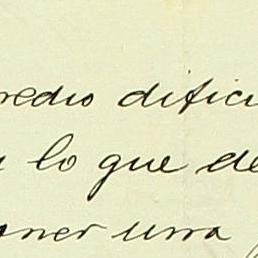 redio dificu
lo que de
oner una